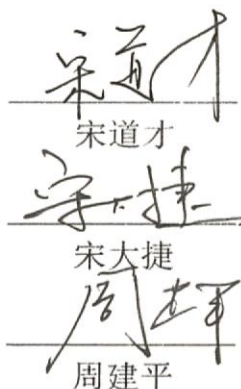 宋道才
宋道才
宋大捷
宋大捷
周建平
周建平